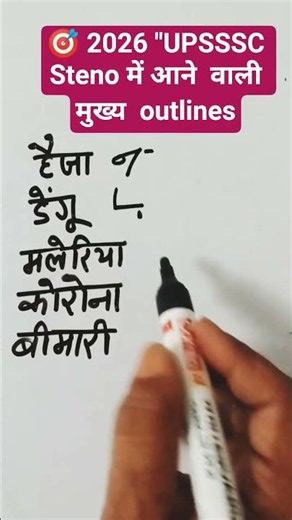 🎯 2026 "UPSSSC
Steno में आने वाली
मुख्य outlines
हैजा
डेंगू
मलेरिया
कोरोना
बीमारी